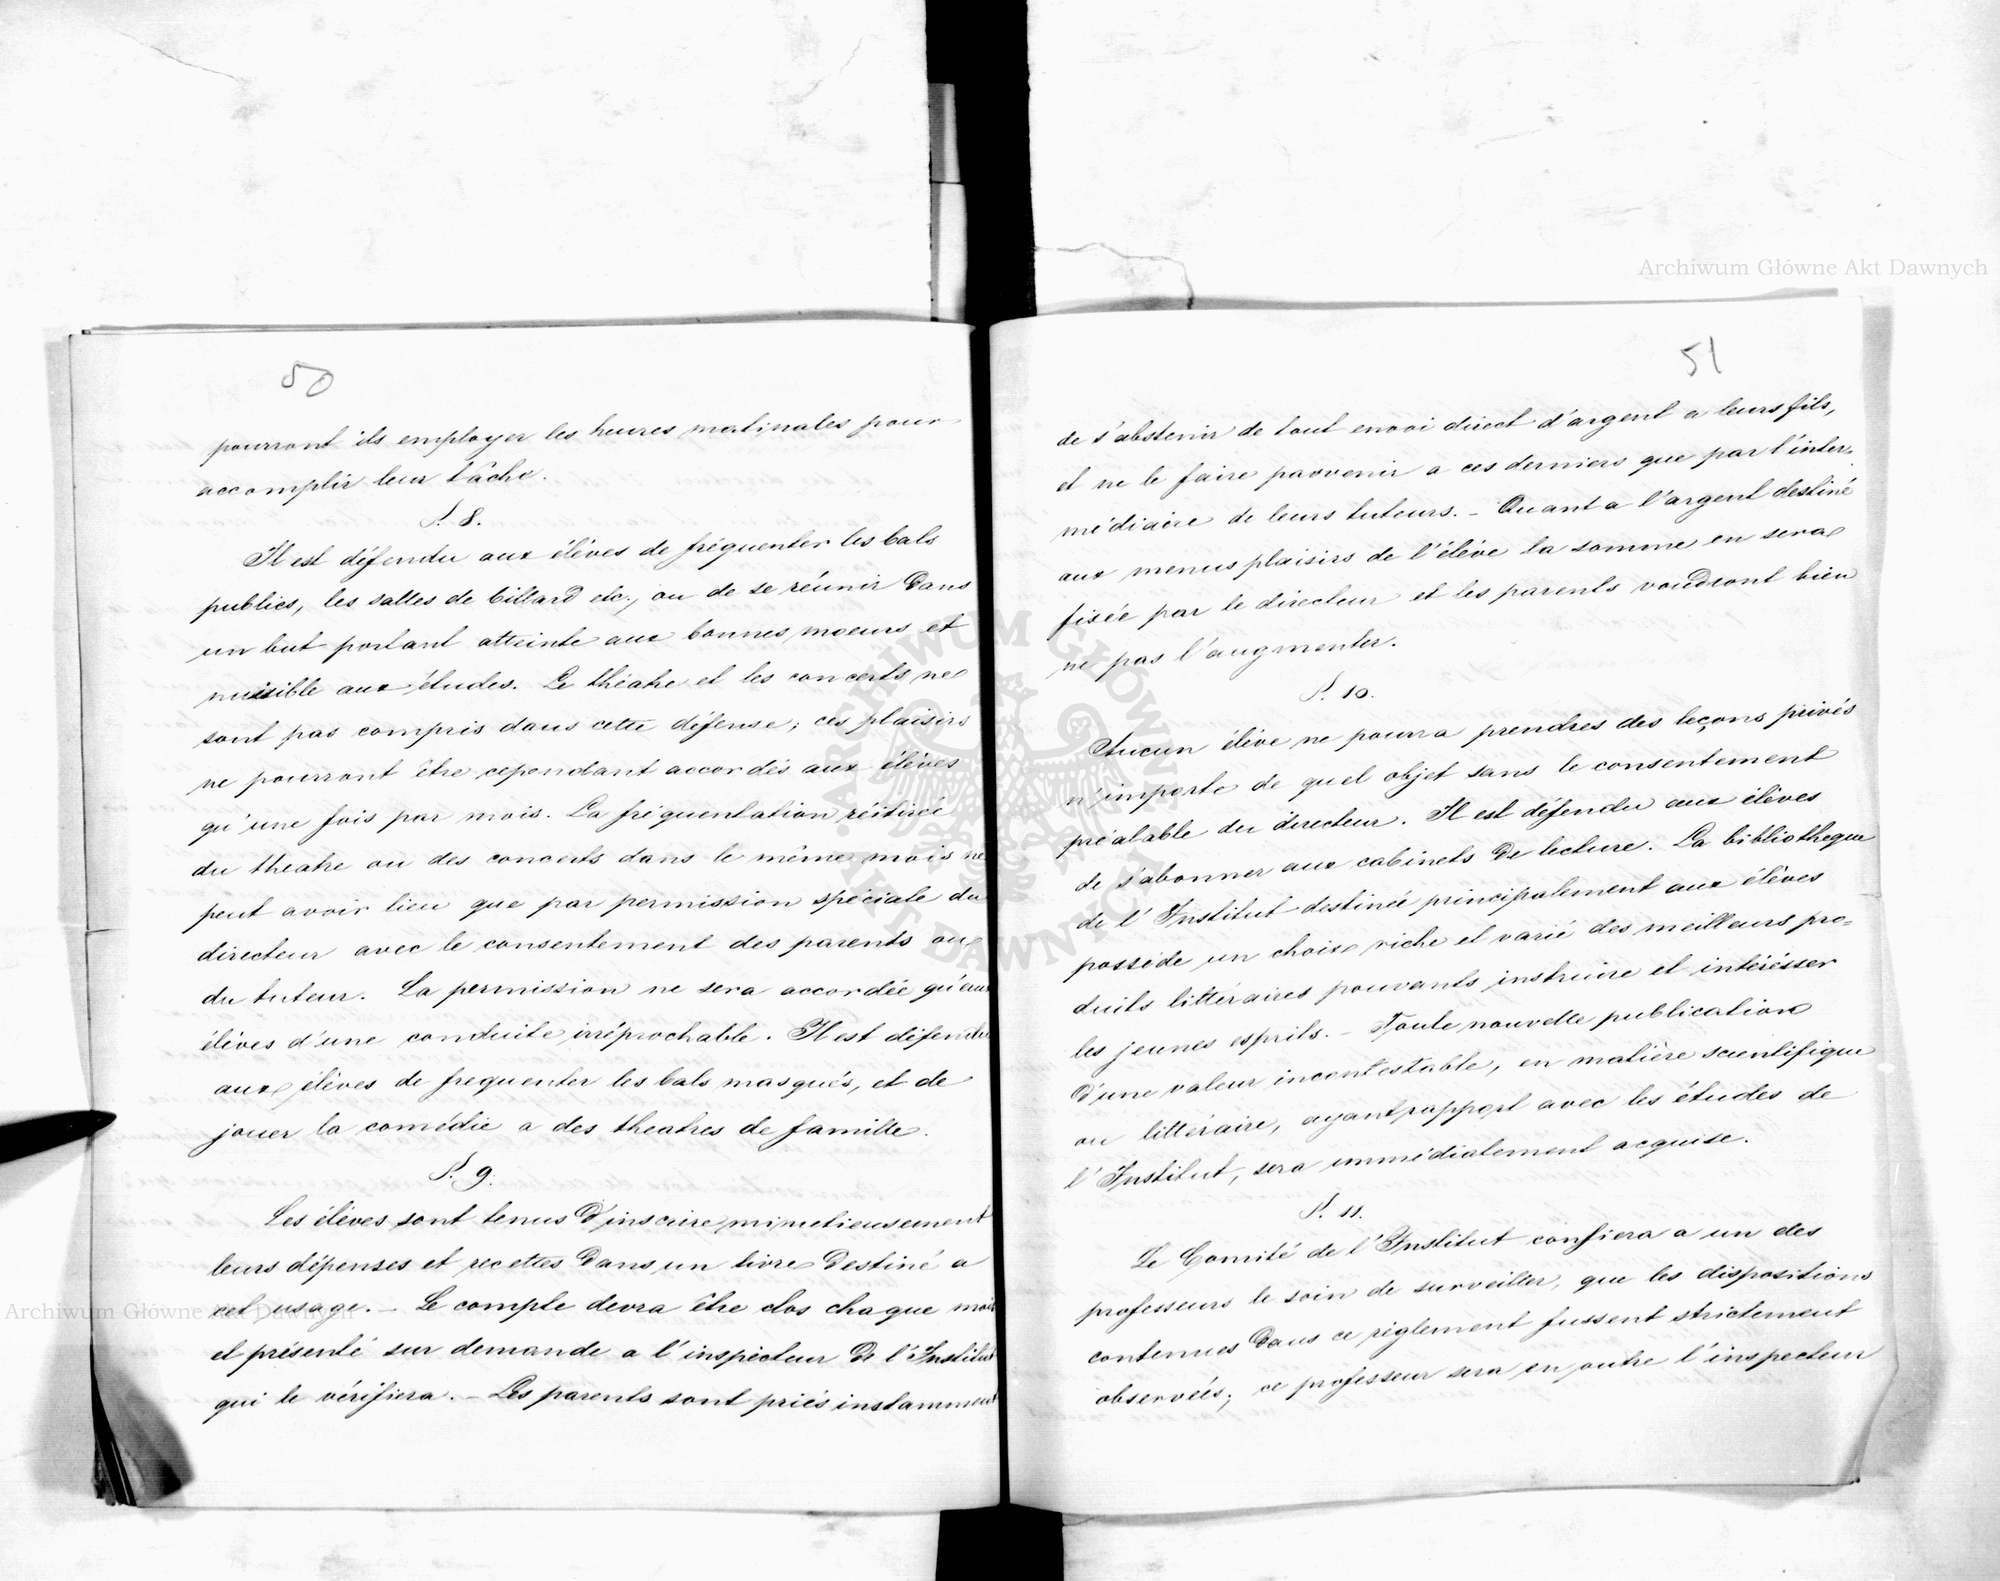 50
pourront ils employer les heures matinales pour
accomplir leur tâche.
§. 8.
Il est défendu aux élèves de fréquenter les bals
publics, les salles de billard etc., ou de se réunir dans
un but portant atteinte aux bonnes moeurs et
nuisible aux études. Le théatre et les concerts ne
sont pas compris dans cette défense; ces plaisirs
ne pourront être cependant accordés aux élèves
qu'une fois par mois. La fréquentation réitirée
du theatre ou des concerts dans le même mois ne
peut avoir lieu que par permission spéciale du
directeur avec le consentement des parents ou
du tuteur. La permission ne sera accordée qu'aux
élèves d'une conduite irréprochable. Il est défendu
aux élèves de frequenter les bals masqués, et de
jouer la comédie a des theatres de famille.
§. 9.
Les élèves sont tenus d'inscrire minutieusement
leurs dépenses et recettes dans un livre destiné a
cet usage. – Le compte devra être clos chaque mois
et présenté sur demande a l'inspecteur de l'Institut
qui le vérifiera. – Les parents sont priés instamment
51
de s'abstenir de tout envoi direct d'argent a leurs fils,
et ne le faire parvenir a ces derniers que par l'inter-
médiaire de leurs tuteurs. – Quant a l'argent destiné
aux menus plaisirs de l'élève la somme en sera
fixée par le directeur et les parents voudront bien
ne pas l'augmenter.
§. 10.
Aucun élève ne pourra prendres des leçons privés
n'importe de quel objet sans le consentement
préalable du directeur. Il est défendu aux élèves
de s'abonner aux cabinets de lecture. La bibliotheque
de l'Institut destinée principalement aux élèves
possède un choix riche et varié des meilleurs pro-
duits littéraires pouvants instruire et intérésser
les jeunes esprits. – Toute nouvelle publication
d'une valeur incontestable, en matière scientifique
ou littéraire, ayant rapport avec les études de
l'Institut, sera immédiatement acquise.
§. 11.
Le Comité de l'Institut confiera a un des
professeurs le soin de surveiller, que les dispositions
contenues dans ce règlement fussent strictement
observées; ce professeur sera en outre l'inspecteur
Archiwum Główne Akt Dawnych
Archiwum Główne Akt Dawnych
ARCHIWUM GŁÓWNE AKT DAWNYCH